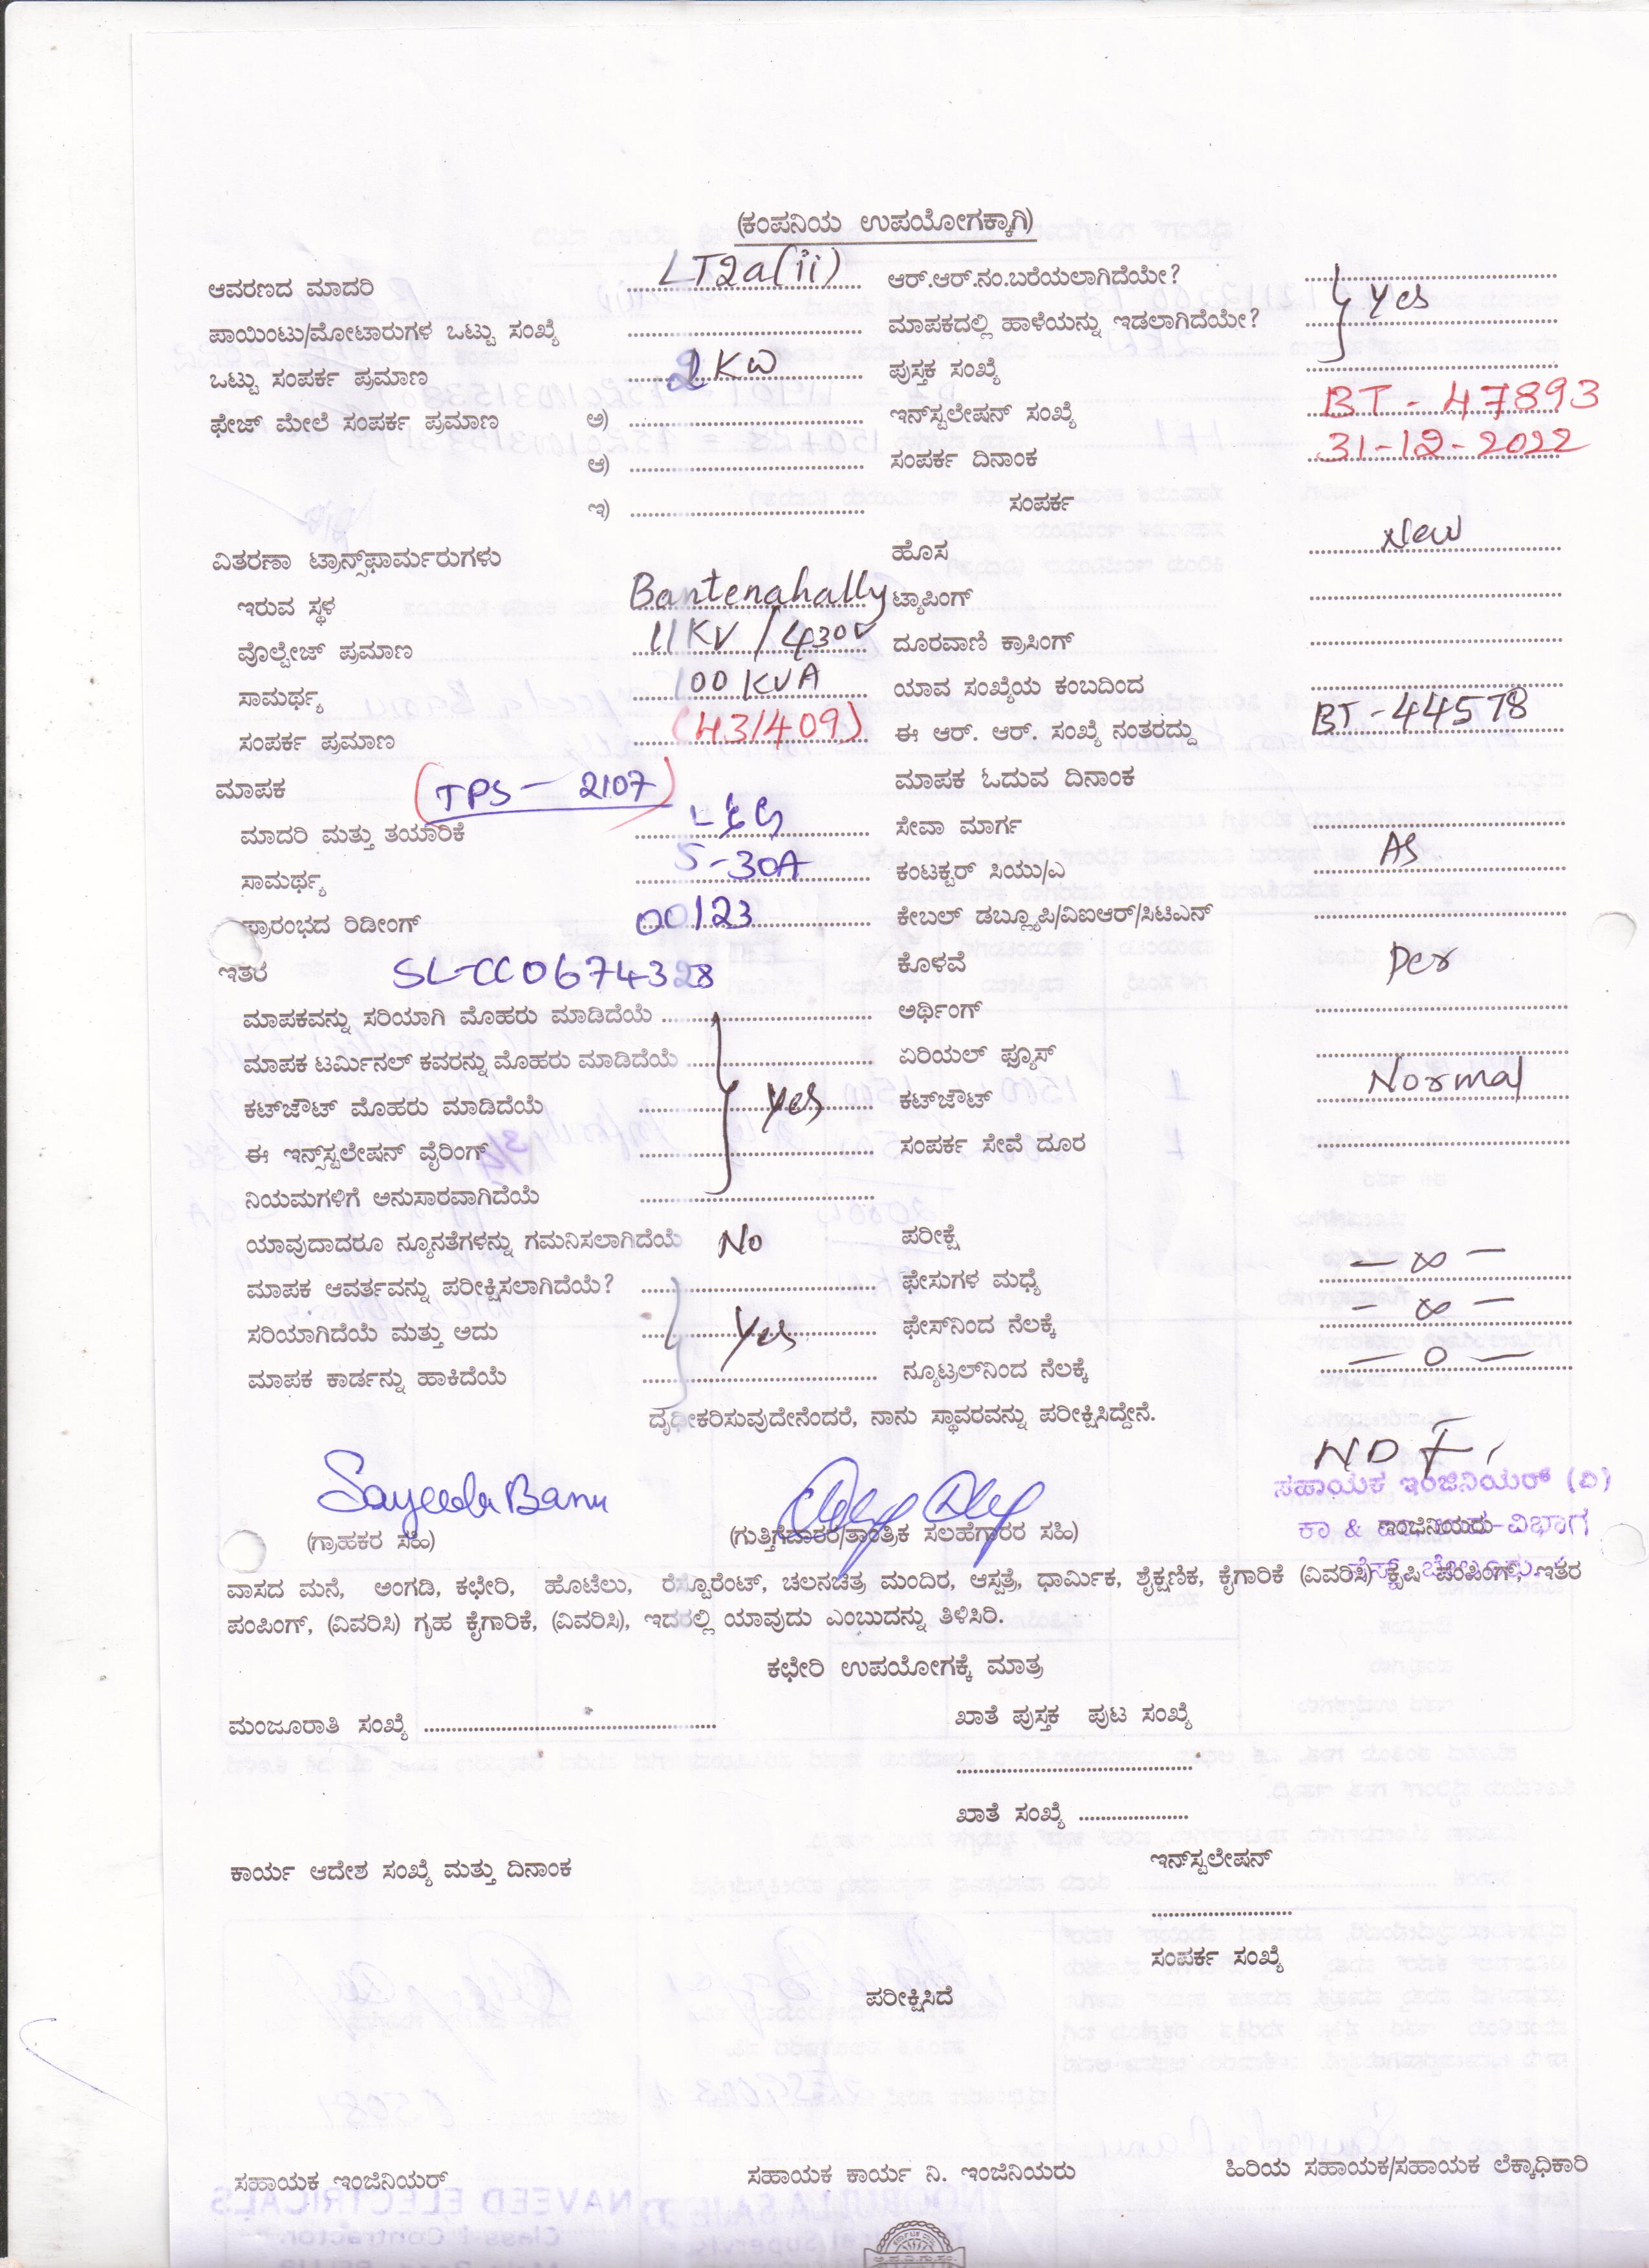 (ಕಂಪನಿಯ ಉಪಯೋಗಕ್ಕಾಗಿ)
ಆವರಣದ ಮಾದರಿ LT2a(ii) ಆರ್.ಆರ್.ನಂ.ಬರೆಯಲಾಗಿದೆಯೇ?
ಪಾಯಿಂಟು/ಮೋಟಾರುಗಳ ಒಟ್ಟು ಸಂಖ್ಯೆ ಮಾಪಕದಲ್ಲಿ ಹಾಳೆಯನ್ನು ಇಡಲಾಗಿದೆಯೇ? yes
ಒಟ್ಟು ಸಂಪರ್ಕ ಪ್ರಮಾಣ 2KW ಪುಸ್ತಕ ಸಂಖ್ಯೆ
ಫೇಜ್ ಮೇಲೆ ಸಂಪರ್ಕ ಪ್ರಮಾಣ ಅ) ಇನ್‌ಸ್ಟಲೇಷನ್ ಸಂಖ್ಯೆ BT - 47893
ಆ) ಸಂಪರ್ಕ ದಿನಾಂಕ 31-12-2022
ಇ) ಸಂಪರ್ಕ
ವಿತರಣಾ ಟ್ರಾನ್ಸ್‌ಫಾರ್ಮರುಗಳು ಹೊಸ New
ಇರುವ ಸ್ಥಳ Bantenahally ಟ್ಯಾಪಿಂಗ್
ವೊಲ್ಟೇಜ್ ಪ್ರಮಾಣ 11KV / 430V ದೂರವಾಣಿ ಕ್ರಾಸಿಂಗ್
ಸಾಮರ್ಥ್ಯ 100 KVA ಯಾವ ಸಂಖ್ಯೆಯ ಕಂಬದಿಂದ
ಸಂಪರ್ಕ ಪ್ರಮಾಣ (431409) ಈ ಆರ್. ಆರ್. ಸಂಖ್ಯೆ ನಂತರದ್ದು BT-44578
ಮಾಪಕ (TPS - 2107) ಮಾಪಕ ಓದುವ ದಿನಾಂಕ
ಮಾದರಿ ಮತ್ತು ತಯಾರಿಕೆ L&G ಸೇವಾ ಮಾರ್ಗ
ಸಾಮರ್ಥ್ಯ 5-30A ಕಂಟಕ್ಟರ್ ಸಿಯು/ಎ AS
ಪ್ರಾರಂಭದ ರಿಡೀಂಗ್ 00123 ಕೇಬಲ್ ಡಬ್ಲ್ಯೂಪಿ/ವಿಐಆರ್/ಸಿಟಿಎನ್
ಇತರ SL-CC0674328 ಕೊಳವೆ Per
ಮಾಪಕವನ್ನು ಸರಿಯಾಗಿ ಮೊಹರು ಮಾಡಿದೆಯೆ ಅರ್ಥಿಂಗ್
ಮಾಪಕ ಟರ್ಮಿನಲ್ ಕವರನ್ನು ಮೊಹರು ಮಾಡಿದೆಯೆ ಏರಿಯಲ್ ಫ್ಯೂಸ್
ಕಟ್‌ಜೌಟ್ ಮೊಹರು ಮಾಡಿದೆಯೆ yes ಕಟ್‌ಜೌಟ್ Normal
ಈ ಇನ್ಸ್‌ಸ್ಟಲೇಷನ್ ವೈರಿಂಗ್ ಸಂಪರ್ಕ ಸೇವೆ ದೂರ
ನಿಯಮಗಳಿಗೆ ಅನುಸಾರವಾಗಿದೆಯೆ
ಯಾವುದಾದರೂ ನ್ಯೂನತೆಗಳನ್ನು ಗಮನಿಸಲಾಗಿದೆಯೆ No ಪರೀಕ್ಷೆ
ಮಾಪಕ ಆವರ್ತವನ್ನು ಪರೀಕ್ಷಿಸಲಾಗಿದೆಯೆ? ಫೇಸುಗಳ ಮಧ್ಯೆ - ∞ -
ಸರಿಯಾಗಿದೆಯೆ ಮತ್ತು ಅದು yes ಫೇಸ್‌ನಿಂದ ನೆಲಕ್ಕೆ - ∞ -
ಮಾಪಕ ಕಾರ್ಡನ್ನು ಹಾಕಿದೆಯೆ ನ್ಯೂಟ್ರಲ್‌ನಿಂದ ನೆಲಕ್ಕೆ - 0 -
ದೃಢೀಕರಿಸುವುದೇನೆಂದರೆ, ನಾನು ಸ್ಥಾವರವನ್ನು ಪರೀಕ್ಷಿಸಿದ್ದೇನೆ.
Sayeeda Banu
ಸಹಾಯಕ ಇಂಜಿನಿಯರ್ (ವಿ)
(ಗ್ರಾಹಕರ ಸಹಿ) (ಗುತ್ತಿಗೆದಾರರ/ತಾಂತ್ರಿಕ ಸಲಹೆಗಾರರ ಸಹಿ) ಇಂಜಿನಿಯರು
ವಾಸದ ಮನೆ, ಅಂಗಡಿ, ಕಛೇರಿ, ಹೊಟೆಲು, ರೆಸ್ಟೂರೆಂಟ್, ಚಲನಚಿತ್ರ ಮಂದಿರ, ಆಸ್ಪತ್ರೆ, ಧಾರ್ಮಿಕ, ಶೈಕ್ಷಣಿಕ, ಕೈಗಾರಿಕೆ (ವಿವರಿಸಿ) ಕೃಷಿ ಪಂಪಿಂಗ್, ಇತರ
ಪಂಪಿಂಗ್, (ವಿವರಿಸಿ) ಗೃಹ ಕೈಗಾರಿಕೆ, (ವಿವರಿಸಿ), ಇದರಲ್ಲಿ ಯಾವುದು ಎಂಬುದನ್ನು ತಿಳಿಸಿರಿ.
ಕಛೇರಿ ಉಪಯೋಗಕ್ಕೆ ಮಾತ್ರ
ಮಂಜೂರಾತಿ ಸಂಖ್ಯೆ ಖಾತೆ ಪುಸ್ತಕ ಪುಟ ಸಂಖ್ಯೆ
ಖಾತೆ ಸಂಖ್ಯೆ
ಕಾರ್ಯ ಆದೇಶ ಸಂಖ್ಯೆ ಮತ್ತು ದಿನಾಂಕ ಇನ್‌ಸ್ಟಲೇಷನ್
ಸಂಪರ್ಕ ಸಂಖ್ಯೆ
ಪರೀಕ್ಷಿಸಿದೆ
ಸಹಾಯಕ ಇಂಜಿನಿಯರ್ ಸಹಾಯಕ ಕಾರ್ಯ ನಿ. ಇಂಜಿನಿಯರು ಹಿರಿಯ ಸಹಾಯಕ/ಸಹಾಯಕ ಲೆಕ್ಕಾಧಿಕಾರಿ